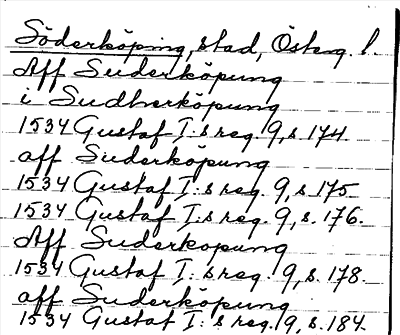 Söderköping, stad, Österg. l.
Aff Suderköpung
i Sudherköpung
1534 Gustaf I:s reg. 9, s. 174.
aff Suderköpung
1534 Gustaf I:s reg. 9, s. 175
1534 Gustaf I:s reg. 9, s. 176.
Aff Suderkopung
1534 Gustaf I: s reg. 9, s. 178.
aff Suderköpung
1534 Gustaf I: s reg. 9, s. 184.